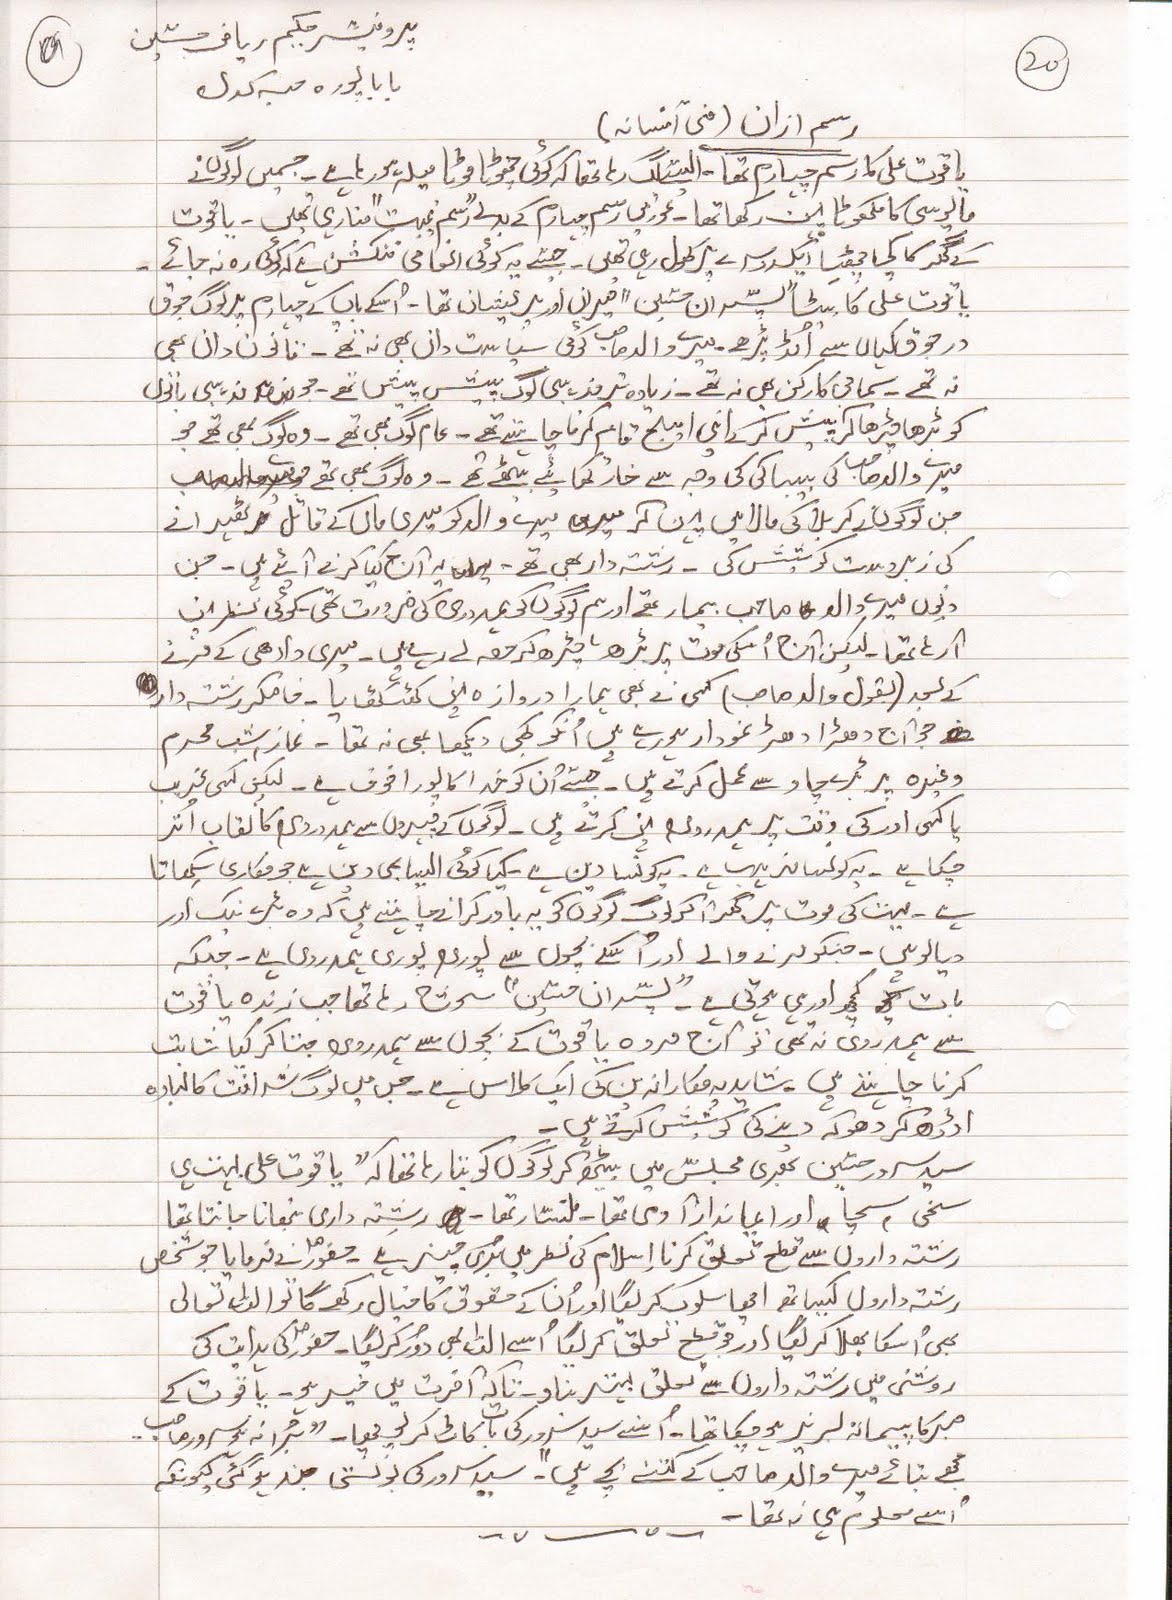 پروفیسر حکیم ریاض حسین
بابا پورہ حبہ کدل
20
رسم ازان (فنی آفسانہ)
یاقوت علی کا رسم چہارم تھا۔ ایسا لگ رہا تھا کہ کوئی چھوٹا موٹا میلہ ہو رہا ہے۔ جسمیں لوگوں نے
مایوسی کا مکھوٹا پہن رکھا تھا۔ عورتیں رسم چہارم کے بدلے "رسم غیبت" منا رہی تھیں۔ یاقوت
کے گھر کا کچا چھٹا ایک دوسرے پر کھول رہی تھیں۔ جیسے یہ کوئی انعامی فنکشن ہے کہ کوئی رہ نہ جائے۔
یاقوت علی کا بیٹا "پسران حسین" حیران اور پریشان تھا۔ اُسکے باپ کے چہارم پر لوگ جوق
در جوق کہاں سے اُمڈ پڑے۔ میرے والد صاحب کوئی سیاست دان بھی نہ تھے۔ قانون دان بھی
نہ تھے۔ سماجی کارکن بھی نہ تھے۔ زیادہ تر مذہبی لوگ پیش پیش تھے۔ جو مذہبی باتوں
کو بڑھا چڑھا کر پیش کر کے اپنی امیج قائم کرنا چاہتے تھے۔ عام لوگ بھی تھے۔ وہ لوگ بھی تھے جو
میرے والد صاحب کی بیباکی کی وجہ سے خار کھائے بیٹھے تھے۔ وہ لوگ بھی تھے
جن لوگوں نے کربلا کی مالا میں پہن کر میرے والد کو میری ماں کے قاتل ٹھہرانے
کی زبردست کوشش کی۔ رشتہ دار بھی تھے۔ یہ آج کیا کرنے آئے ہیں۔ جن
دنوں میرے والد صاحب بیمار تھے اور ہم لوگوں کو ہمدردی کی ضرورت تھی۔ کوئی نظر نہیں
آ رہا تھا۔ لیکن آج اُنکی موت پر بڑھ چڑھ کر حصہ لے رہے ہیں۔ میری دادھی کے مرنے
کے بعد (بقول والد صاحب) کسی نے بھی ہمارا دروازہ نہیں کھٹکھٹایا۔ خاصکر رشتہ دار
جو آج دھڑا دھڑ نمودار ہو رہے ہیں اُنکو کبھی دیکھا بھی نہ تھا۔ نماز، شب محرم
وغیرہ پر بڑے چاو سے عمل کرتے ہیں۔ جیسے اُن کو خدا کا پورا خوف ہے۔ لیکن کسی غریب
یا کسی اور کی وقت پر ہمدردی نہیں کرتے ہیں۔ لوگوں کے چہروں سے ہمدردی کا نقاب اُتر
چکا ہے۔ یہ کونسا مذہب ہے۔ یہ کونسا دین ہے۔ کیا کوئی ایسا بھی دین ہے جو مکاری سکھاتا
ہے۔ میت کی موت پر گھر آ کر لوگ لوگوں کو یہ باور کرانے چاہتے ہیں کہ وہ بڑے نیک اور
دیالو ہیں۔ جنکو مرنے والے اور اُسکے بچوں سے پوری پوری ہمدردی ہے۔ جبکہ
بات کچھ اور ہی ہوتی ہے۔ "پسران حسین" سوچ رہا تھا جب زندہ یاقوت
سے ہمدردی نہ تھی تو آج مردہ یاقوت کے بچوں سے ہمدردی جتا کر کیا ثابت
کرنا چاہتے ہیں۔ شاید یہ مکارانہ پن کی ایک کلاس ہے۔ جس میں لوگ شرافت کا لبادہ
اوڑھ کر دھوکہ دینے کی کوشش کرتے ہیں۔
سید سرور حسین بھری مجلس میں بیٹھ کر لوگوں کو بتا رہا تھا کہ "یاقوت علی بہت ہی
سخی، سچا، اور ایماندار آدمی تھا۔ ملنسار تھا۔ رشتہ داری نبھانا جانتا تھا
رشتہ داروں سے قطع تعلق کرنا اسلام کی نظر میں بُری چیز ہے۔ حضورؐ نے فرمایا جو شخص
رشتہ داروں کیساتھ اچھا سلوک کریگا اور اُن کے حقوق کا خیال رکھے گا تو اللہ تعالیٰ
بھی اُسکا بھلا کریگا اور جو قطع تعلق کریگا اُسے اللہ بھی دور کریگا۔ حضورؐ کی ہدایت کی
روشنی میں رشتہ داروں سے تعلق بہتر بناو۔ تاکہ آخرت میں خیر ہو۔ یاقوت کے
صبر کا پیمانہ لبریز ہو چکا تھا۔ اُسنے سید سرور کی بات کاٹ کر پوچھا۔ "بُرا نہ ہو سرور صاحب
مجھے بتائے میرے والد صاحب کے کتنے بچے ہیں"۔ سید سرور کی بولتی بند ہو گئی کیونکہ
اُسے معلوم ہی نہ تھا۔